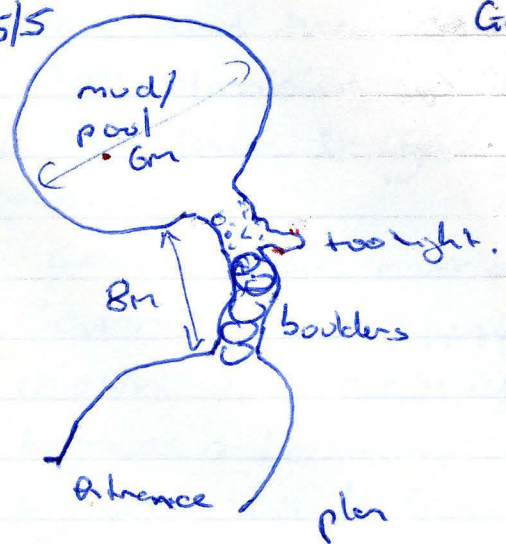 5/5
G
mud/
pool
6m
too tight.
8m
boulders
Entrance
plan